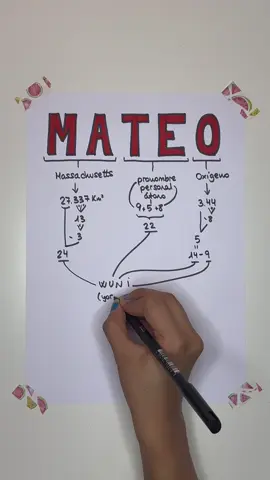 MATEO
Massachusetts
pronombre
personal
átono
Oxígeno
27.337 Km²
9+5+8
3.44
13
-8
-3
22
5
24
14-9
WUNi
(yor